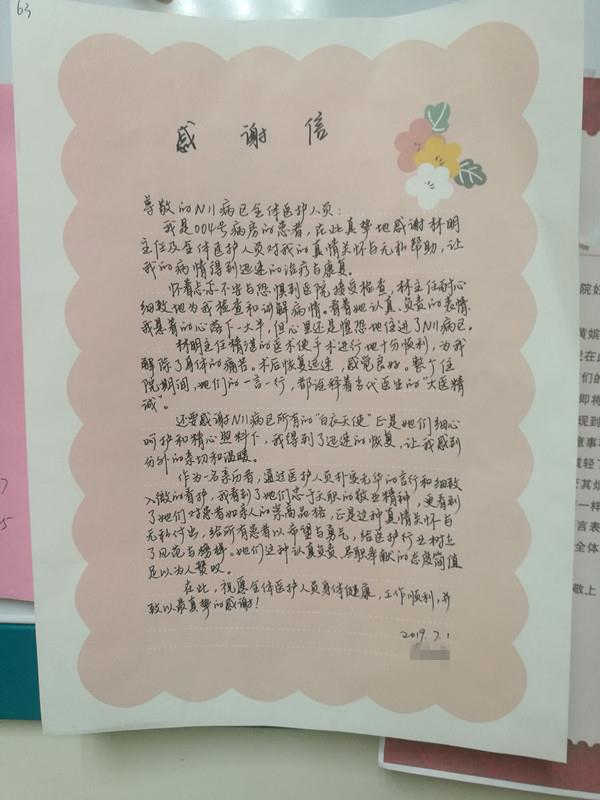 63
感谢信
尊敬的N11病区全体医护人员：
我是004号病房的患者，在此真挚地感谢林明
主任及全体医护人员对我的真情关怀与无私帮助，让
我的病情得到迅速的治疗与康复。
怀着忐忑不安与恐惧到医院接受检查，林主任耐心
细致地为我检查和讲解病情。看着她认真、负责的表情，
我悬着的心落下一大半，但心里还是惶恐地住进了N11病区。
林明主任精湛的医术使手术进行地十分顺利，为我
解除了身体的痛苦。术后恢复迅速，感觉良好。整个住
院期间，她们的一言一行，都诠释着当代医生的“大医精
诚”。
还要感谢N11病区所有的“白衣天使”正是她们细心
呵护和精心照料下，我得到了迅速的恢复，让我感到
分外的亲切和温暖。
作为一名亲历者，通过医护人员朴实无华的言行和细致
入微的看护，我看到了她们忠于天职的敬业精神，更看到
了她们对患者如亲人的崇高品格，正是这种真情关怀与
无私付出，给所有患者以希望与勇气，给医护行业树立
了见范与榜样。她们这种认真负责、尽职奉献的态度简值
足以为人赞叹。
在此，祝愿全体医护人员身体健康，工作顺利，并
致以最真挚的感谢！
2019.7.1
7
5
院好
黄嫔
说在此
们的
即将
现到
意事
轻了
其烦
一样
言表
全体
敬上